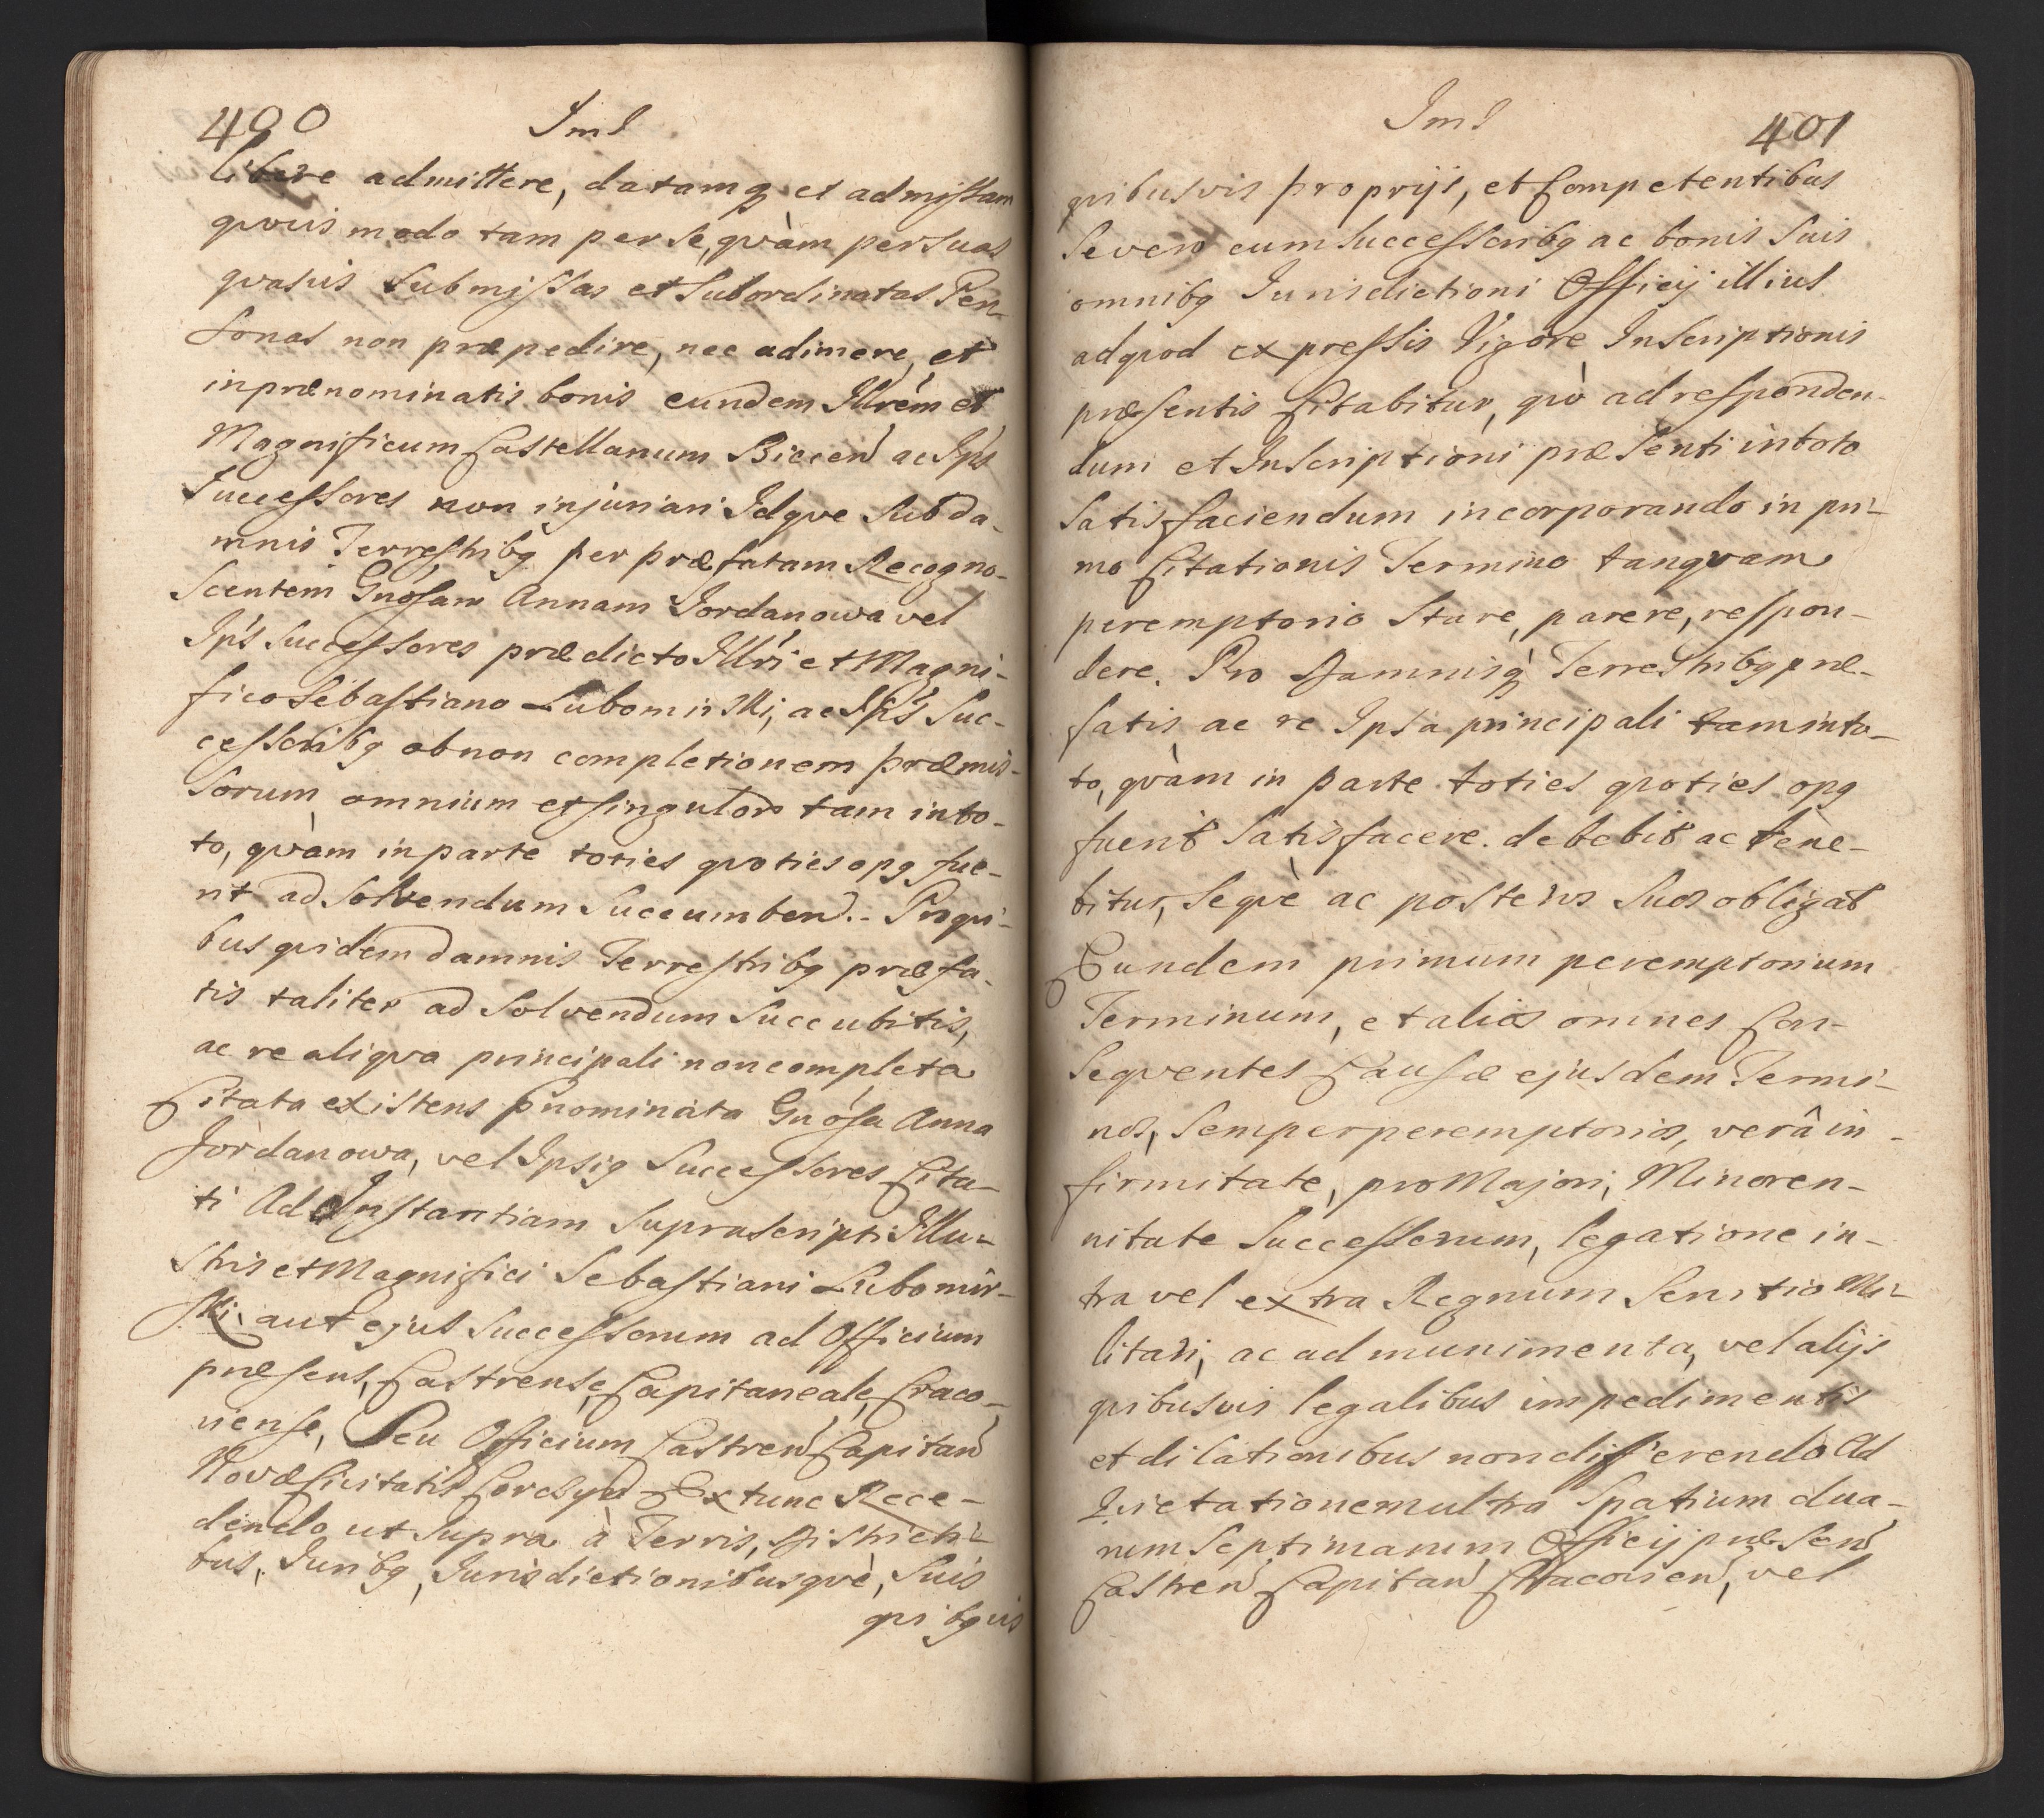 400 Iml
libere admittere, datamq et admissam
qvvis modo tam per se, qvàm per suas
qvasvis Submissas et Subordinatas Per-
sonas non præpedire, nec adimere, et
in prænominatis bonis eundem Illrém et
Magnificum Castellanum Biecen ac Ips
Successores non injuriari Idqve Sub da-
mnis Terrestribq per præfatam Recogno-
Scentem Gnósam Annam Jordanowa vel
Ips Successores prædicto Illri et Magni-
fico Sebastiano Lubomirski, ac Ips Suc-
cessoribq ob non completionem præmis-
Sorum omnium et singulor tam in to-
to, qvàm in parte toties qvoties opq fue-
rit ad Solvendum Succumben. Pro qvi-
bus qvidem damnis Terrestribq præfa-
tis taliter ad Solvendum Succubitis,
ac re aliqva principali non completa
Citata existens pnominata Gnósa Anna
Jordanowa, vel Ipsiq Successores Cita-
ti Ad Instantiam Suprascripti Illu-
stris et Magnifici Sebastiani Lubomir-
ski aut ejus Successorum ad Officium
præsens, Castrense, Capitaneale, Craco-
viense, Seu Officium Castren Capitan
Novæ Civitatis Corczyn Ex tunc Rece-
dendo ut Supra à Terris, Districti-
bus, Juribq, Jurisdictionibusqvè, Suis
qvibqvis
Iml 401
qvibusvis proprijs, et Competentibus
Se vero cum Successoribq ac bonis Suis
omnibq Jurisdictioni Officij illius
ad qvod expressis Vigore Inscriptionis
præsentis Citabitur, qvò ad responden-
dum et Inscriptioni præsenti in toto
Satisfaciendum incorporando in pri-
mo Citationis Termino tanqvam
peremptorio Stare, parere, respon-
dere. Pro Damnisq Terrestribq præ-
fatis ac re Ipsa principali tam in to-
to, qvàm in parte toties qvoties opq
fuerit Satisfacere. debebit ac tene-
bitur, Seqvè ac posteros Suos obligat
Eundem primum peremptorium
Terminum, et alios omnes Con-
Seqventes Causæ ejusdem Termi-
nos, Semper peremptorios, verâ in-
firmitate, pro Majori, Minoren-
nitate Successorum, legatione in-
tra vel extra Regnum Servitio Mi-
litari, ac ad munimenta, vel alijs
qvibusvis legalibus impedimentis
et dilationibus non differendo Ad
Qvietationem ultra Spatium dua-
rum Septimanarum Officij præsen
Castren Capitan Cracovien, vel